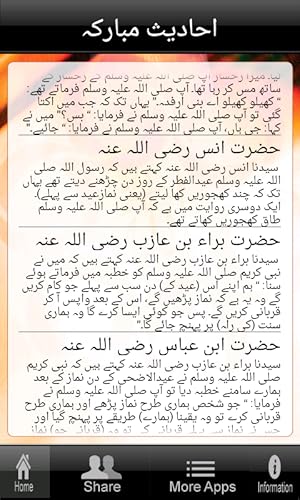 احادیث مبارکہ
لیا۔ میرا رخسار آپ صلی اللہ علیہ وسلم کے رخسار کے
ساتھ مس کر رہا تھا۔ آپ صلی اللہ علیہ وسلم فرماتے تھے:
” کھیلو کھیلو اے بنی أرفدہ۔“ یہاں تک کہ جب میں اکتا
گئی تو آپ صلی اللہ علیہ وسلم نے فرمایا: ” بس؟“ میں نے
کہا: جی ہاں، آپ صلی اللہ علیہ وسلم نے فرمایا: ” جائیے۔“
حضرت انس رضی اللہ عنہ
سیدنا انس رضی اللہ عنہ کہتے ہیں کہ رسول اللہ صلی
اللہ علیہ وسلم عیدالفطر کے روز دن چڑھنے دیتے تھے یہاں
تک کہ چند کھجوریں کھا لیتے (یعنی نماز عید سے پہلے)
ایک دوسری روایت میں ہے کہ آپ صلی اللہ علیہ وسلم
طاق کھجوریں کھاتے تھے۔
حضرت براء بن عازب رضی اللہ عنہ
سیدنا براء بن عازب رضی اللہ عنہ کہتے ہیں کہ میں نے
نبی کریم صلی اللہ علیہ وسلم کو خطبہ میں فرماتے ہوئے
سنا: ” ہم اپنے اس (عید کے) دن سب سے پہلے جو کام کریں
گے وہ یہ ہے کہ نماز پڑھیں گے، اس کے بعد واپس آ کر
قربانی کریں گے۔ پس جو کوئی ایسا کرے گا وہ ہماری
سنت (کی راہ) پر پہنچ جائے گا۔“
حضرت ابن عباس رضی اللہ عنہ
سیدنا براء بن عازب رضی اللہ عنہ کہتے ہیں کہ نبی کریم
صلی اللہ علیہ وسلم نے عیدالاضحی کے دن نماز کے بعد
ہمارے سامنے خطبہ دیا تو آپ صلی اللہ علیہ وسلم نے
فرمایا: ” جو شخص ہماری طرح نماز پڑھے اور ہماری طرح
قربانی کرے تو وہ یقینا (ہمارے) طریقے پر پہنچ گیا اور
جس نے نماز سے پہلے قربانی کی تو وہ (قربانی جو) نماز
Home
Share
More Apps
Information